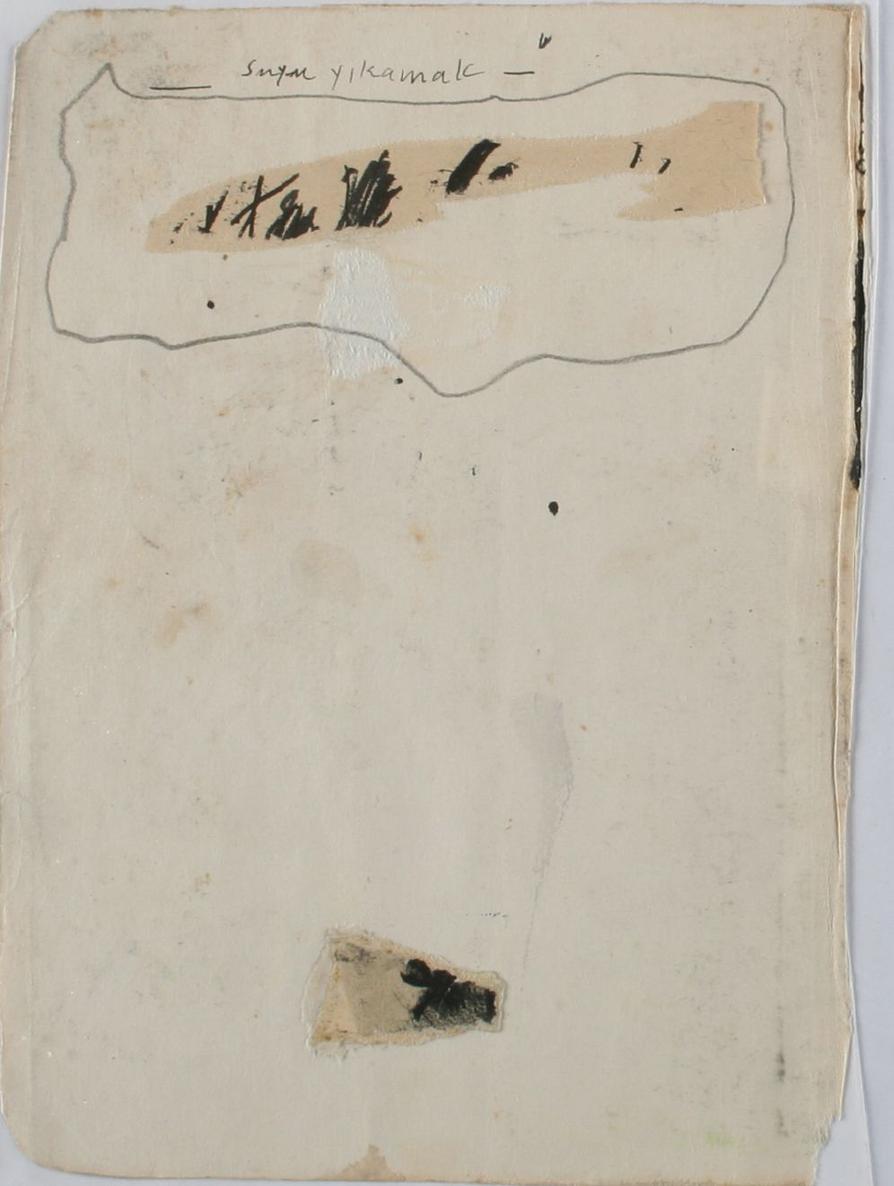 — suyu yıkamak —